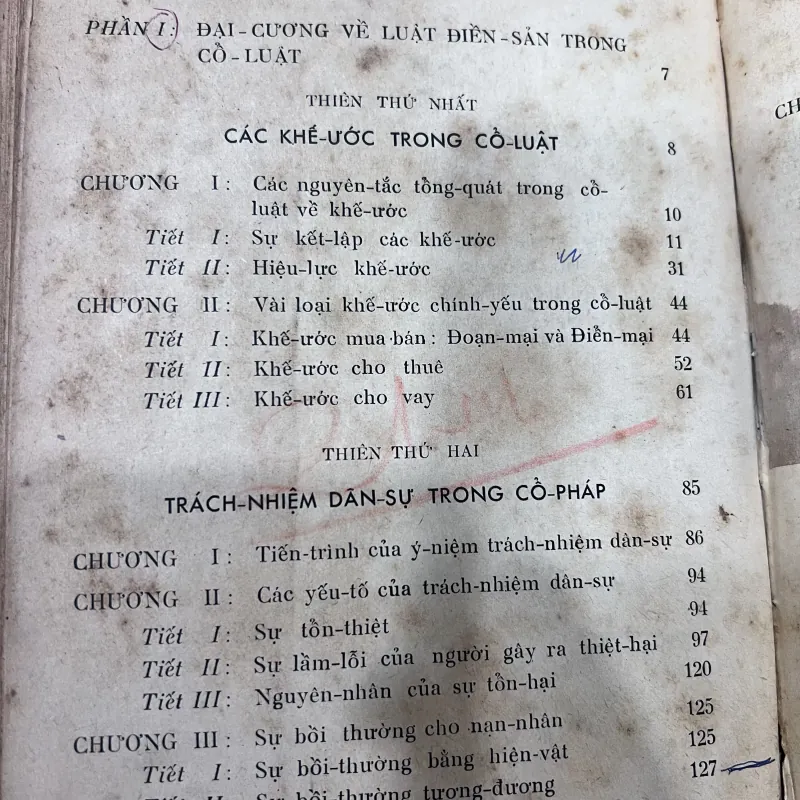 PHẦN I: ĐẠI-CƯƠNG VỀ LUẬT ĐIỀN-SẢN TRONG
CỔ-LUẬT 7
THIÊN THỨ NHẤT
CÁC KHẾ-ƯỚC TRONG CỔ-LUẬT 8
CHƯƠNG I: Các nguyên-tắc tổng-quát trong cổ-
luật về khế-ước 10
Tiết I: Sự kết-lập các khế-ước 11
Tiết II: Hiệu-lực khế-ước 31
CHƯƠNG II: Vài loại khế-ước chính-yếu trong cổ-luật 44
Tiết I: Khế-ước mua bán: Đoạn-mại và Điển-mại 44
Tiết II: Khế-ước cho thuê 52
Tiết III: Khế-ước cho vay 61
THIÊN THỨ HAI
TRÁCH-NHIỆM DÂN-SỰ TRONG CỔ-PHÁP 85
CHƯƠNG I: Tiến-trình của ý-niệm trách-nhiệm dân-sự 86
CHƯƠNG II: Các yếu-tố của trách-nhiệm dân-sự 94
Tiết I: Sự tổn-thiệt 94
Tiết II: Sự lầm-lỗi của người gây ra thiệt-hại 97
Tiết III: Nguyên-nhân của sự tổn-hại 120
CHƯƠNG III: Sự bồi thường cho nạn-nhân 125
Tiết I: Sự bồi-thường bằng hiện-vật 125
Tiết II: Sự bồi-thường tương-đương 127
CH